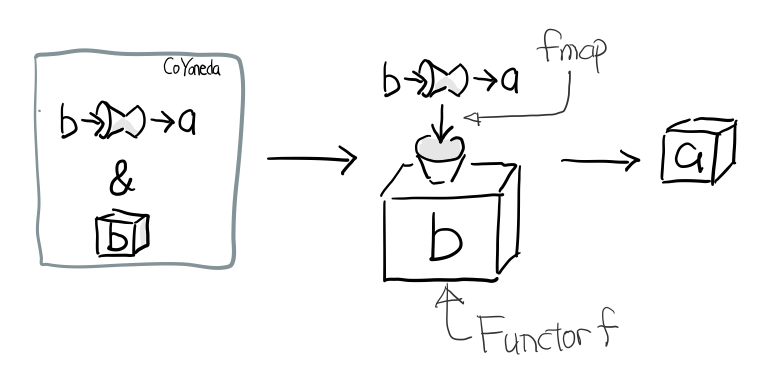 CoYoneda
b→ →a
&
b
b→ →a
fmap
b
Functor f
a